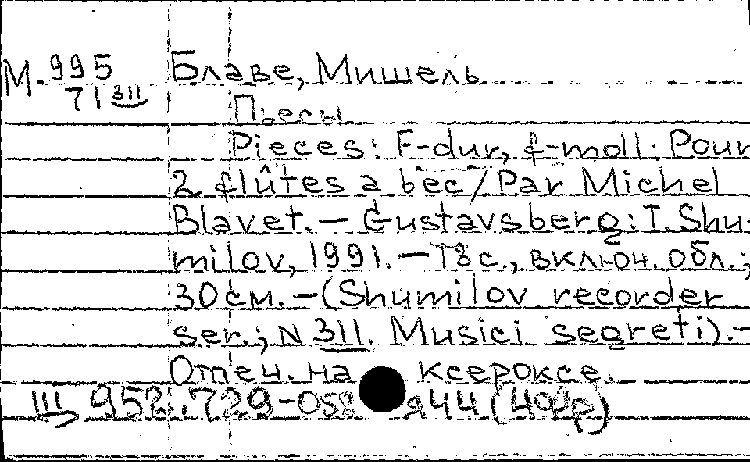 М.995 Блаве, Мишель
71311
Пьесы
Pieces: F-dur, f-moll. Pour
2 flûtes a bec / Par Michel
Blavet. – Gustavsberg: I. Shu-
milov, 1991. – 18 с., включ. обл.;
30 см. – (Shumilov recorder
ser.; N 311. Musici segreti). –
Отпеч. на ксероксе.
III 952.729-058 я44 (